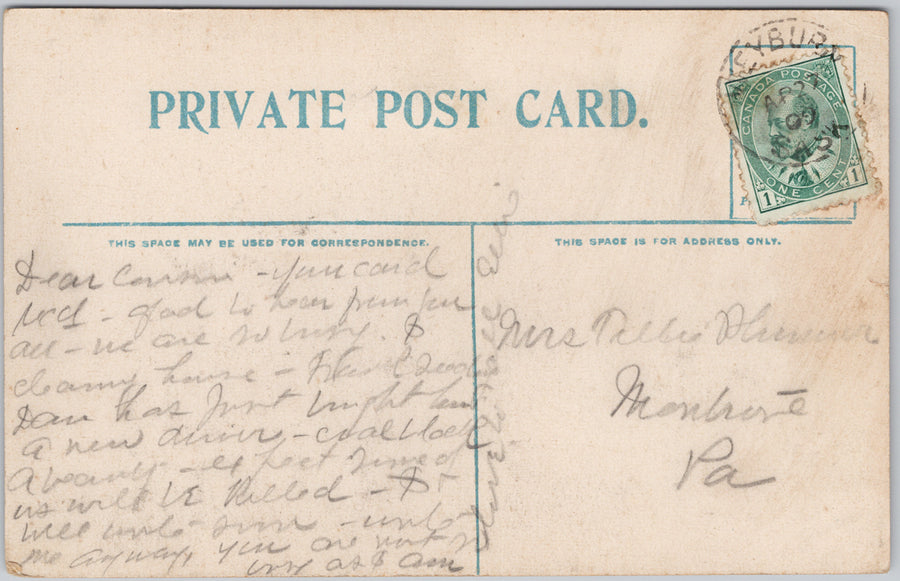 PRIVATE POST CARD.
WEYBURN
AP 2
09
SASK
CANADA POSTAGE
1 ONE CENT 1
THIS SPACE MAY BE USED FOR CORRESPONDENCE.
Dear Cousin - your card
recd - glad to hear from you
all - we are so busy. &
cleaning house -
Dan has just bought
a new driver - coal black
a beauty - expect some of
us will be killed - I
will write soon - write
me anyway, you are not so
busy as I am
THIS SPACE IS FOR ADDRESS ONLY.
Mrs Tillie
Montrose
Pa